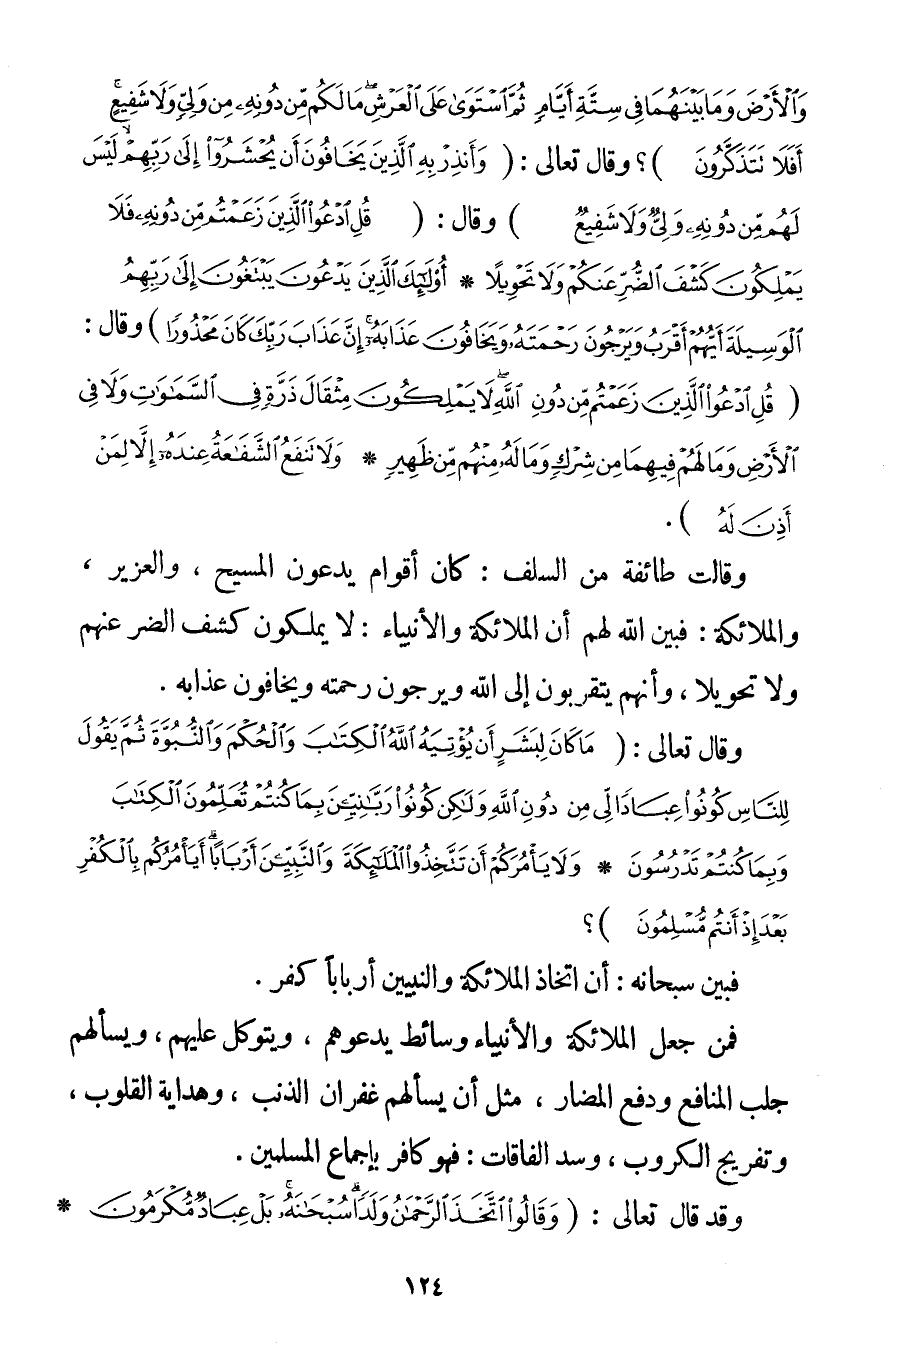 وَٱلْأَرْضَ وَمَا بَيْنَهُمَا فِى سِتَّةِ أَيَّامٍ ثُمَّ ٱسْتَوَىٰ عَلَى ٱلْعَرْشِ ۖ مَا لَكُم مِّن دُونِهِۦ مِن وَلِىٍّ وَلَا شَفِيعٍ ۚ
أَفَلَا تَتَذَكَّرُونَ )؟ وقال تعالى : ( وَأَنذِرْ بِهِ ٱلَّذِينَ يَخَافُونَ أَن يُحْشَرُوٓا۟ إِلَىٰ رَبِّهِمْ ۙ لَيْسَ
لَهُم مِّن دُونِهِۦ وَلِىٌّ وَلَا شَفِيعٌ ) وقال : ( قُلِ ٱدْعُوا۟ ٱلَّذِينَ زَعَمْتُم مِّن دُونِهِۦ فَلَا
يَمْلِكُونَ كَشْفَ ٱلضُّرِّ عَنكُمْ وَلَا تَحْوِيلًا * أُو۟لَٰٓئِكَ ٱلَّذِينَ يَدْعُونَ يَبْتَغُونَ إِلَىٰ رَبِّهِمُ
ٱلْوَسِيلَةَ أَيُّهُمْ أَقْرَبُ وَيَرْجُونَ رَحْمَتَهُۥ وَيَخَافُونَ عَذَابَهُۥٓ ۚ إِنَّ عَذَابَ رَبِّكَ كَانَ مَحْذُورًا ) وقال :
( قُلِ ٱدْعُوا۟ ٱلَّذِينَ زَعَمْتُم مِّن دُونِ ٱللَّهِ ۖ لَا يَمْلِكُونَ مِثْقَالَ ذَرَّةٍ فِى ٱلسَّمَٰوَٰتِ وَلَا فِى
ٱلْأَرْضِ وَمَا لَهُمْ فِيهِمَا مِن شِرْكٍ وَمَا لَهُۥ مِنْهُم مِّن ظَهِيرٍ * وَلَا تَنفَعُ ٱلشَّفَٰعَةُ عِندَهُۥٓ إِلَّا لِمَنْ
أَذِنَ لَهُ ) .
وقالت طائفة من السلف : كان أقوام يدعون المسيح ، والعزير ،
والملائكة : فبين الله لهم أن الملائكة والأنبياء : لا يملكون كشف الضر عنهم
ولا تحويلا ، وأنهم يتقربون إلى الله ويرجون رحمته ويخافون عذابه .
وقال تعالى : ( مَا كَانَ لِبَشَرٍ أَن يُؤْتِيَهُ ٱللَّهُ ٱلْكِتَٰبَ وَٱلْحُكْمَ وَٱلنُّبُوَّةَ ثُمَّ يَقُولَ
لِلنَّاسِ كُونُوا۟ عِبَادًا لِّى مِن دُونِ ٱللَّهِ وَلَٰكِن كُونُوا۟ رَبَّٰنِيِّـۧنَ بِمَا كُنتُمْ تُعَلِّمُونَ ٱلْكِتَٰبَ
وَبِمَا كُنتُمْ تَدْرُسُونَ * وَلَا يَأْمُرَكُمْ أَن تَتَّخِذُوا۟ ٱلْمَلَٰٓئِكَةَ وَٱلنَّبِيِّـۧنَ أَرْبَابًا ۗ أَيَأْمُرُكُم بِٱلْكُفْرِ
بَعْدَ إِذْ أَنتُم مُّسْلِمُونَ )؟
فبين سبحانه : أن اتخاذ الملائكة والنبيين أرباباً كفر .
فمن جعل الملائكة والأنبياء وسائط يدعوهم ، ويتوكل عليهم ، ويسألهم
جلب المنافع ودفع المضار ، مثل أن يسألهم غفران الذنب ، وهداية القلوب ،
وتفريج الكروب ، وسد الفاقات : فهو كافر بإجماع المسلمين .
وقد قال تعالى : ( وَقَالُوا۟ ٱتَّخَذَ ٱلرَّحْمَٰنُ وَلَدًا ۗ سُبْحَٰنَهُۥ ۚ بَلْ عِبَادٌ مُّكْرَمُونَ *
١٢٤